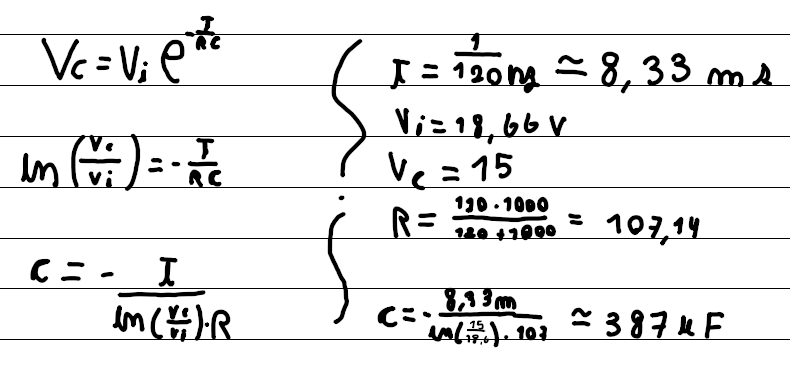 Vc = Vi e^(-I/RC)
ln (Vc/Vi) = - I/RC
C = - I / (ln (Vc/Vi) · R)
I = 1/120 Hz ≃ 8,33 ms
Vi = 18,66 V
Vc = 15
R = 120 · 1000 / 120 + 1000 = 107,14
C = - 8,33m / (ln (15/18,6) · 107) ≃ 387 µF